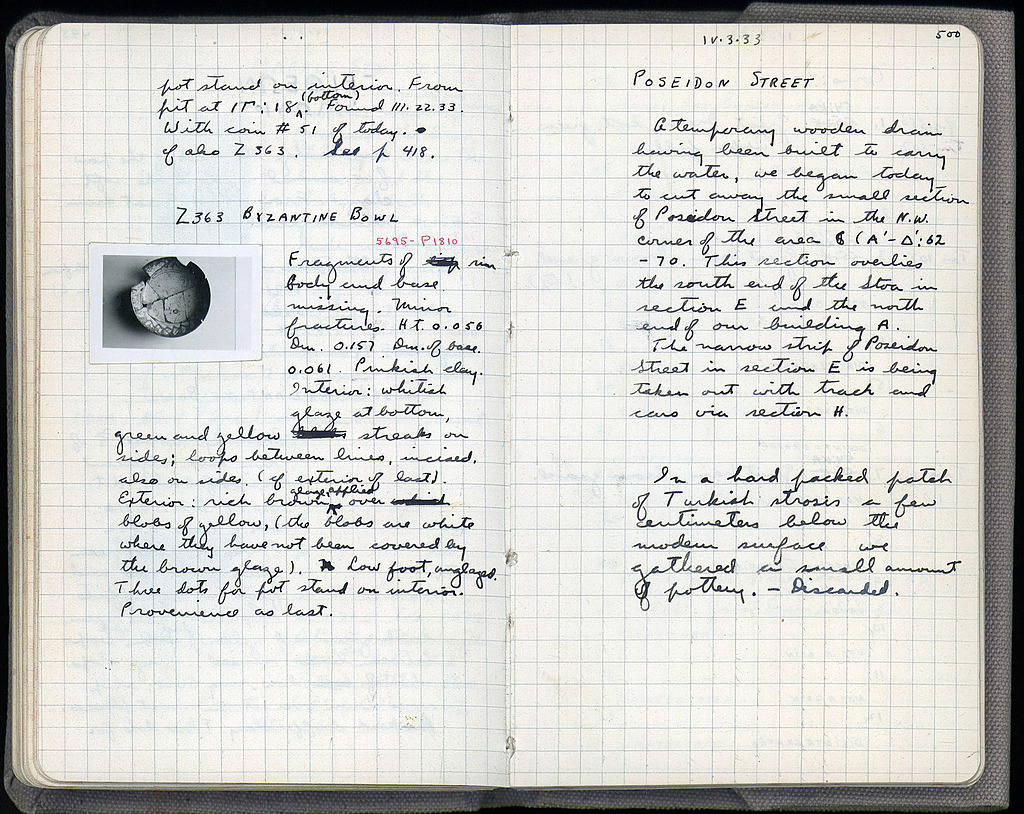 pot stand on interior. From
pit at ΙΓ: 18 (bottom). Found III.22.33.
With coin # 51 of today.
cf also Z 363. See p 418.
Z363 BYZANTINE BOWL
5695 - P1810
Fragments of rim
body and base
missing. Minor
fractures. Ht. 0.056
Dm. 0.157 Dm. of base.
0.061. Pinkish clay.
Interior: whitish
glaze at bottom,
green and yellow streaks on
sides; loops between lines, incised.
also on sides. (cf exterior of last).
Exterior: rich brown glaze applied over
blobs of yellow, (the blobs are white
where they have not been covered by
the brown glaze). Low foot, unglazed.
Three dots for pot stand on interior.
Provenience as last.
IV.3.33
500
POSEIDON STREET
A temporary wooden drain
having been built to carry
the water, we began today
to cut away the small section
of Poseidon Street in the N.W.
corner of the area (A'-Δ': 62
-70. This section overlies
the south end of the Stoa in
section E and the north
end of our building A.
The narrow strip of Poseidon
Street in section E is being
taken out with track and
cars via section H.
In a hard packed patch
of Turkish strosis a few
centimeters below the
modern surface we
gathered a small amount
of pottery. - Discarded.